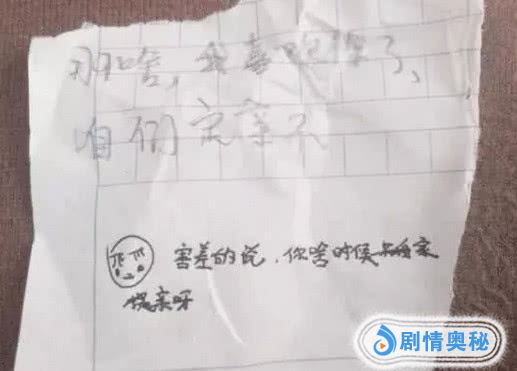 那啥,我喜欢你了、
咱们定亲不
害差的说,你啥时候来我家
提亲呀
剧情奥秘